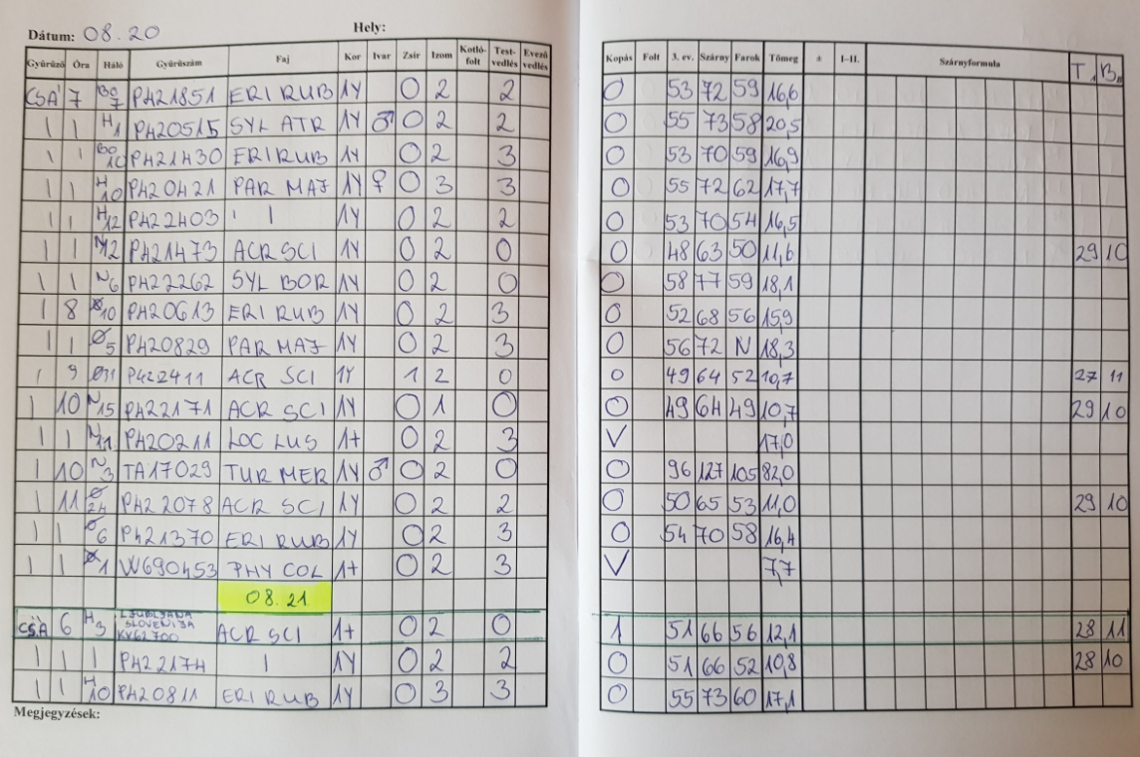 Dátum: 08.20 Hely:
Gyűrűző Óra Háló Gyűrűszám Faj Kor Ivar Zsír Izom Kotló-folt Test-vedlés Evező vedlés Kopás Folt 3. ev. Szárny Farok Tömeg ± I–II. Szárnyformula T B
CSÁ 7 Bo 7 PA21851 ERI RUB 1Y 0 2 2 0 53 72 59 16,6
I I H1 PA20515 SYL ATR 1Y ♂ 0 2 2 0 55 73 58 20,5
I I Bo 10 PA21430 ERI RUB 1Y 0 2 3 0 53 70 59 16,9
I I H 10 PA20421 PAR MAJ 1Y ♀ 0 3 3 0 55 72 62 17,7
I I H 12 PA22403 I I 1Y 0 2 2 0 53 70 54 16,5
I I N12 PA21473 ACR SCI 1Y 0 2 0 0 48 63 50 11,6 29 10
I I N6 PA22262 SYL BOR 1Y 0 2 0 0 58 77 59 18,1
I 8 Ø10 PA20613 ERI RUB 1Y 0 2 3 0 52 68 56 15,9
I I Ø5 PA20829 PAR MAJ 1Y 0 2 3 0 56 72 N 18,3
I 9 Ø11 PA22411 ACR SCI 1Y 1 2 0 0 49 64 52 10,7 27 11
I 10 N15 PA22171 ACR SCI 1Y 0 1 0 0 49 64 49 10,7 29 10
I I N11 PA20211 LOC LUS 1+ 0 2 3 V 17,0
I 10 N3 TA17029 TUR MER 1Y ♂ 0 2 0 0 96 127 105 82,0
I 11 Ø 24 PA22078 ACR SCI 1Y 0 2 2 0 50 65 53 11,0 29 10
I I Ø6 PA21370 ERI RUB 1Y 0 2 3 0 54 70 58 16,4
I I Ø1 W690453 PHY COL 1+ 0 2 3 V 7,7
08.21
CSÁ 6 H3 LJUBLJANA SLOVENIJA KV62700 ACR SCI 1+ 0 2 0 1 51 66 56 12,1 28 11
I I I PA22174 I 1Y 0 2 2 0 51 66 52 10,8 28 10
I I H 10 PA20811 ERI RUB 1Y 0 3 3 0 55 73 60 17,1
Megjegyzések: